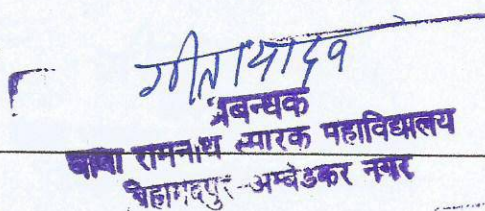 गीता यादव
प्रबन्धक
बाबा रामनाथ स्मारक महाविद्यालय
अम्बेडकर नगर